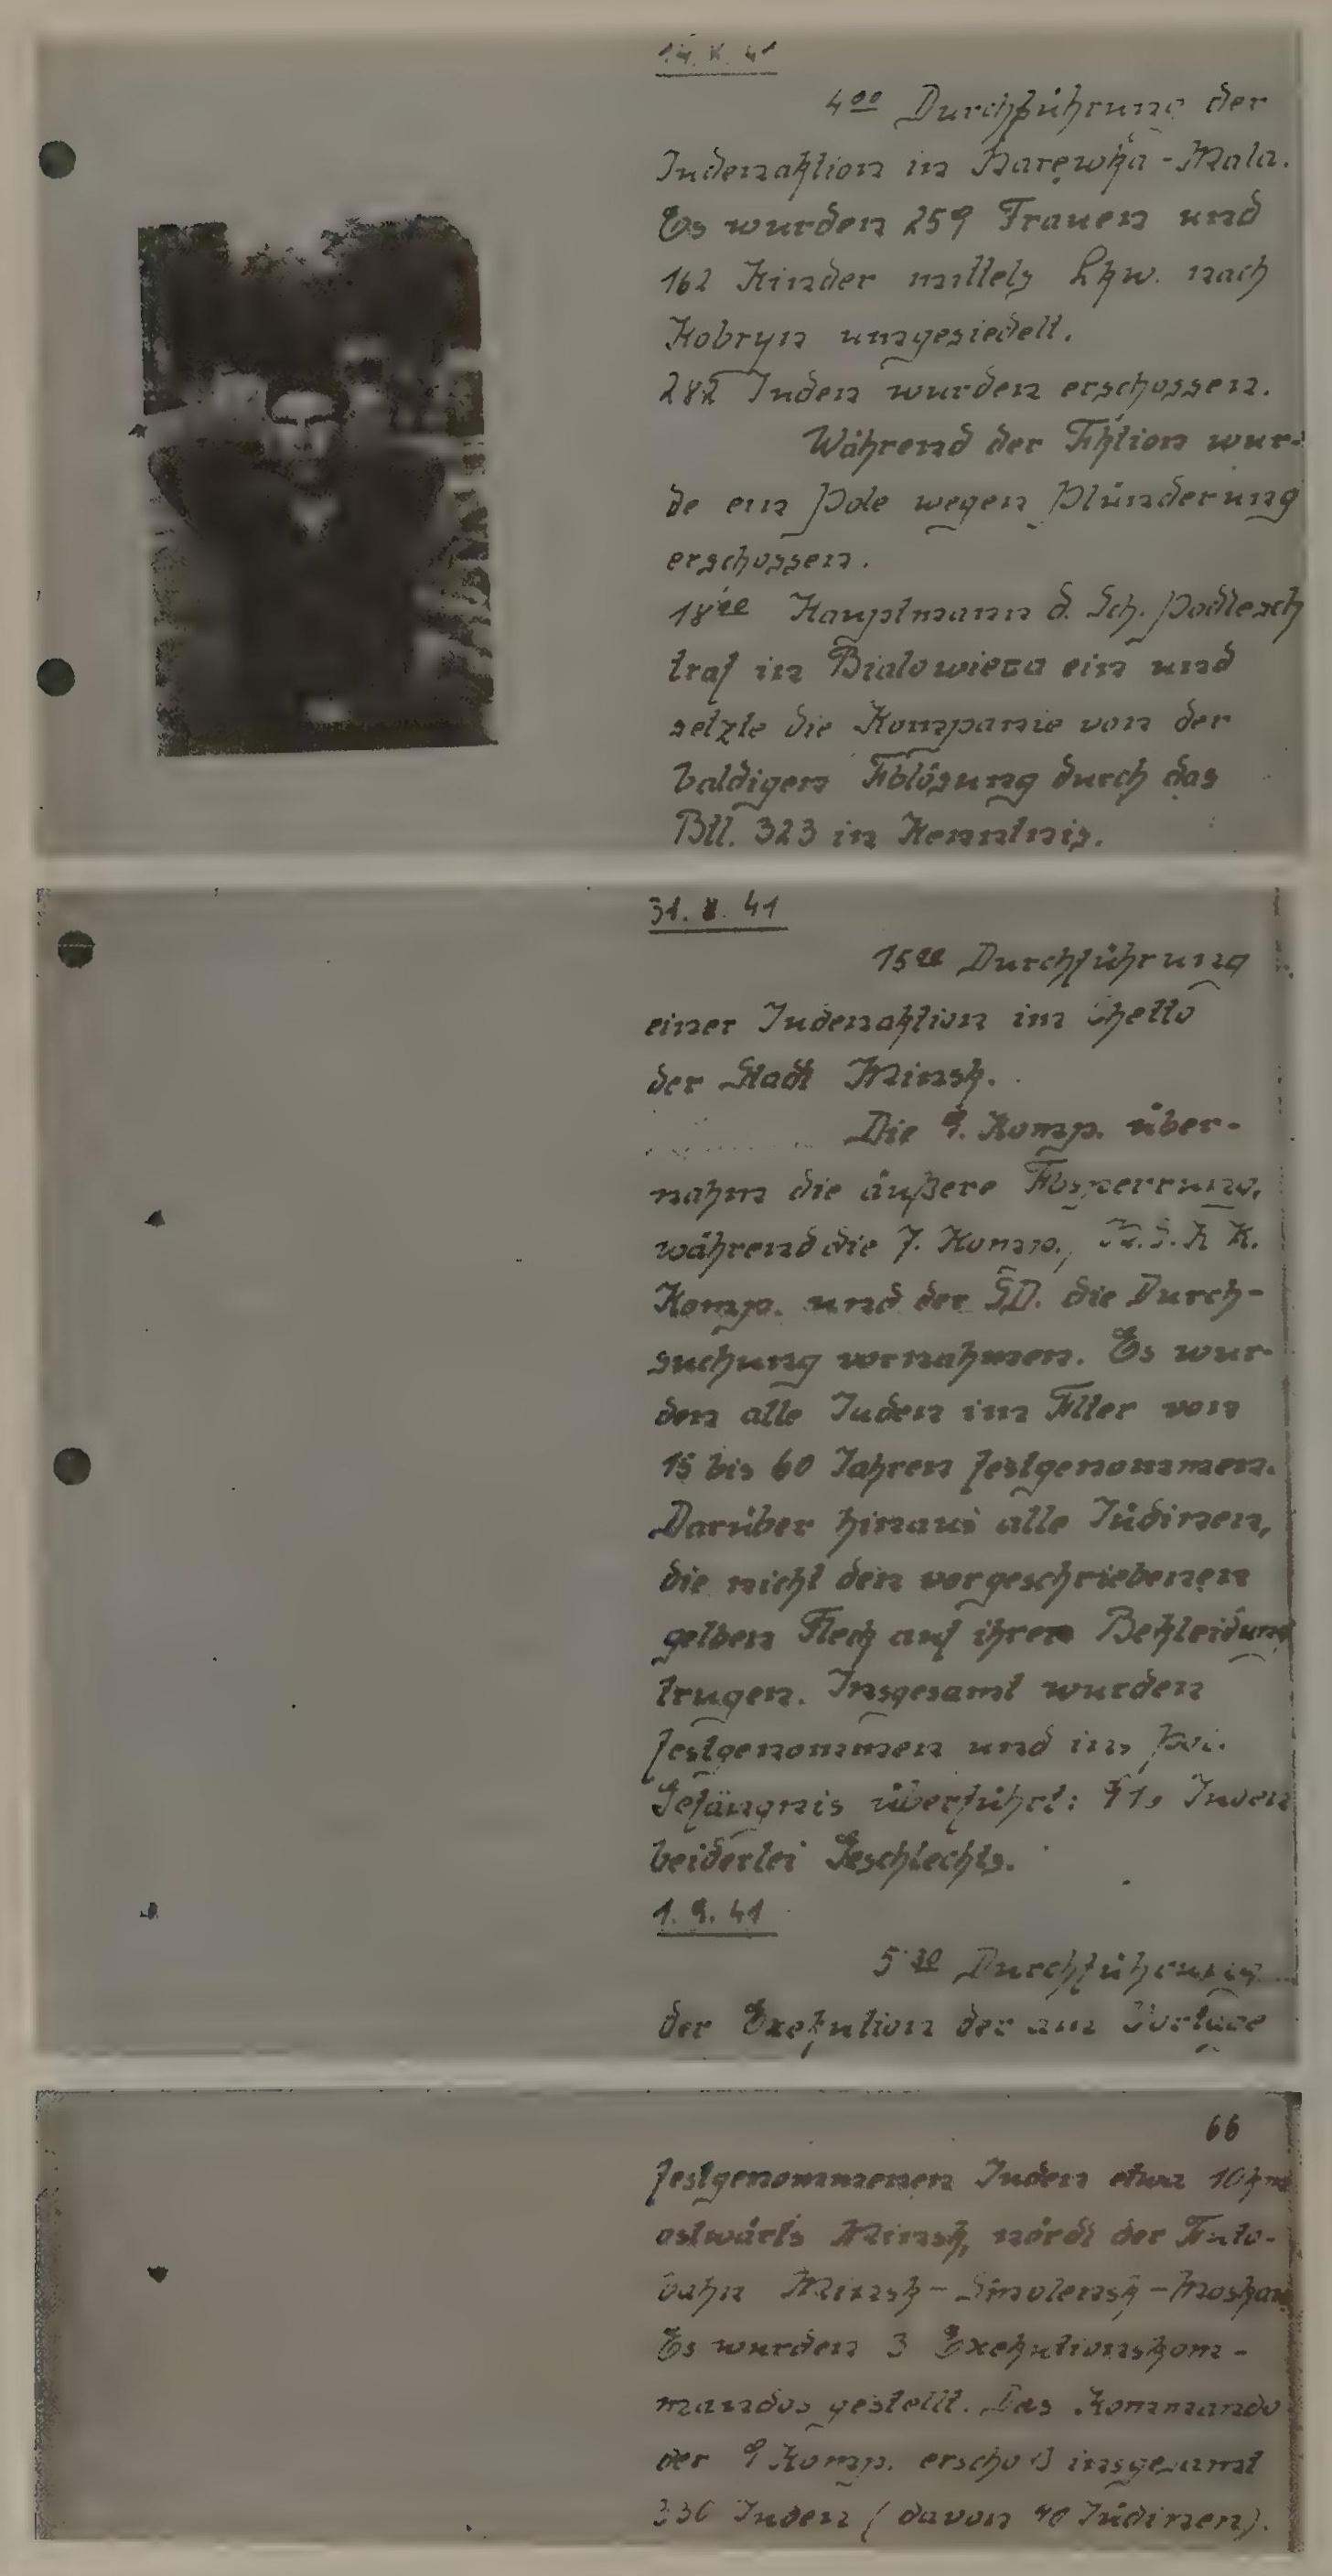 41
4⁰⁰ Durchführung der
Judenaktion in Narewka-Mala.
Es wurden 259 Frauen und
162 Kinder mittels Lkw. nach
Kobryn umgesiedelt.
282 Juden wurden erschossen.
Während der Aktion wur-
de ein Pole wegen Plünderung
erschossen.
18⁰⁰ Hauptmann d. Sch. Podlesch
traf in Bialowieza ein und
setzte die Kompanie von der
baldigen Ablösung durch das
Btl. 323 in Kenntnis.
31. 8. 41
15⁰⁰ Durchführung
einer Judenaktion im Ghetto
der Stadt Minsk.
Die 9. Komp. über-
nahm die äußere Absperrung,
während die 7. Komp., N.S.K.K.
Komp. und der SD. die Durch-
suchung vornahmen. Es wur-
den alle Juden im Alter von
15 bis 60 Jahren festgenommen.
Darüber hinaus alle Jüdinen,
die nicht den vorgeschriebenen
gelben Fleck auf ihren Bekleidung
trugen. Insgesamt wurden
festgenommen und ins
Gefängnis überführt: Juden
beiderlei Geschlechts.
1. 9. 41
5³⁰ Durchführung
der Exekution der am Vortage
66
festgenommenen Juden etwa 10 km
ostwärts Minsk, nördl der Auto-
bahn Minsk-Smolensk-Moskau
Es wurden 3 Exekutionskom-
mandos gestellt. Das Kommando
der 9 Komp. erschoß insgesamt
330 Juden (davon 40 Jüdinen).